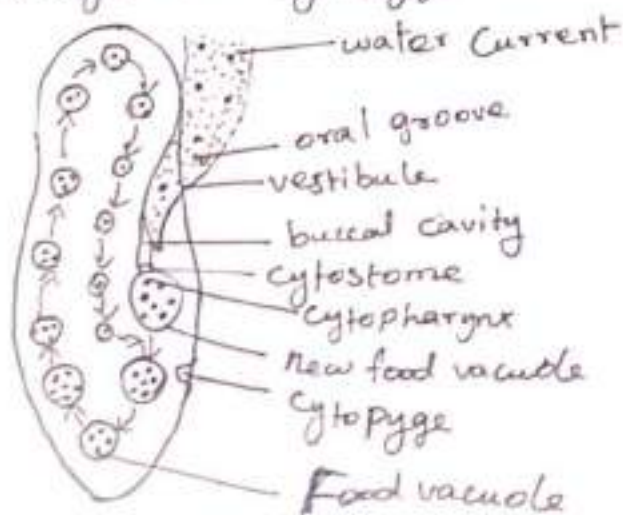 water Current
oral groove
vestibule
buccal cavity
cytostome
cytopharynx
new food vacuole
Cytopyge
Food vacuole